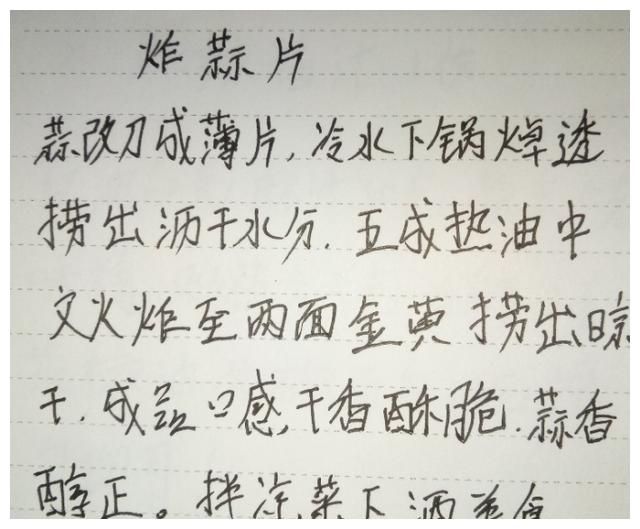 炸蒜片
蒜改刀成薄片,冷水下锅焯透
捞出沥干水分.五成热油中
文火炸至两面金黄捞出晾
干.成品口感干香酥脆.蒜香
醇正。拌凉菜下酒美食